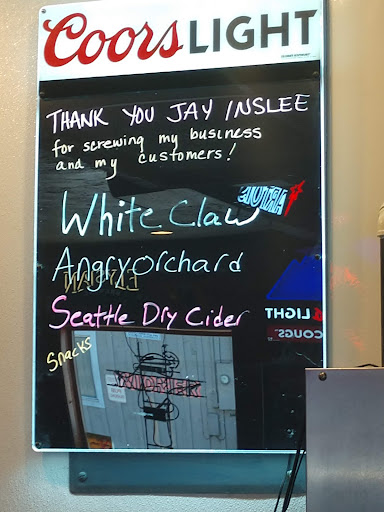 Coors LIGHT
THANK YOU JAY INSLEE
for screwing my business
and my customers!
White Claw
Angryorchard
Seattle Dry Cider
LIGHT
COUGS
Snacks